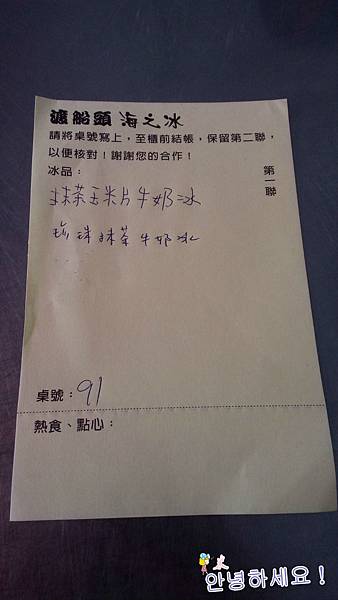 渡船頭 海之冰
請將桌號寫上，至櫃前結帳，保留第二聯，
以便核對！謝謝您的合作！
冰品：
第一聯
抹茶玉米片牛奶冰
珍珠抹茶牛奶冰
桌號：91
熱食、點心：
안녕하세요！